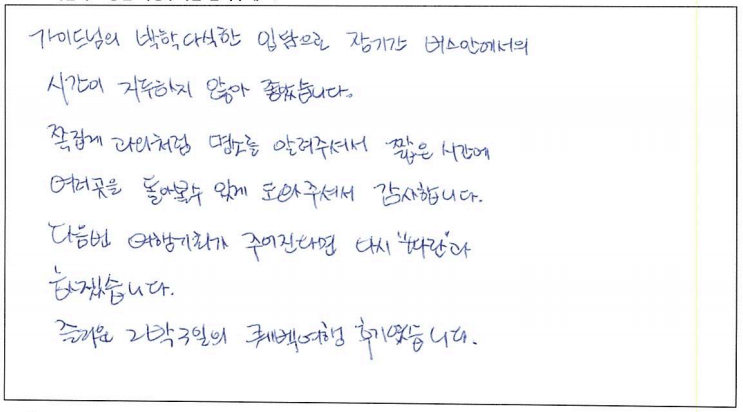 가이드님의 박학다식한 입담으로 장기간 버스안에서의
시간이 지루하지 않아 좋았습니다.
쪽집게 과외처럼 명소를 알려주셔서 짧은 시간에
여러곳을 돌아볼수 있게 도와주셔서 감사합니다.
다음번 여행기회가 주어진다면 다시 "파란"과
하겠습니다.
즐거운 2박3일의 퀘벡여행 후기였습니다.